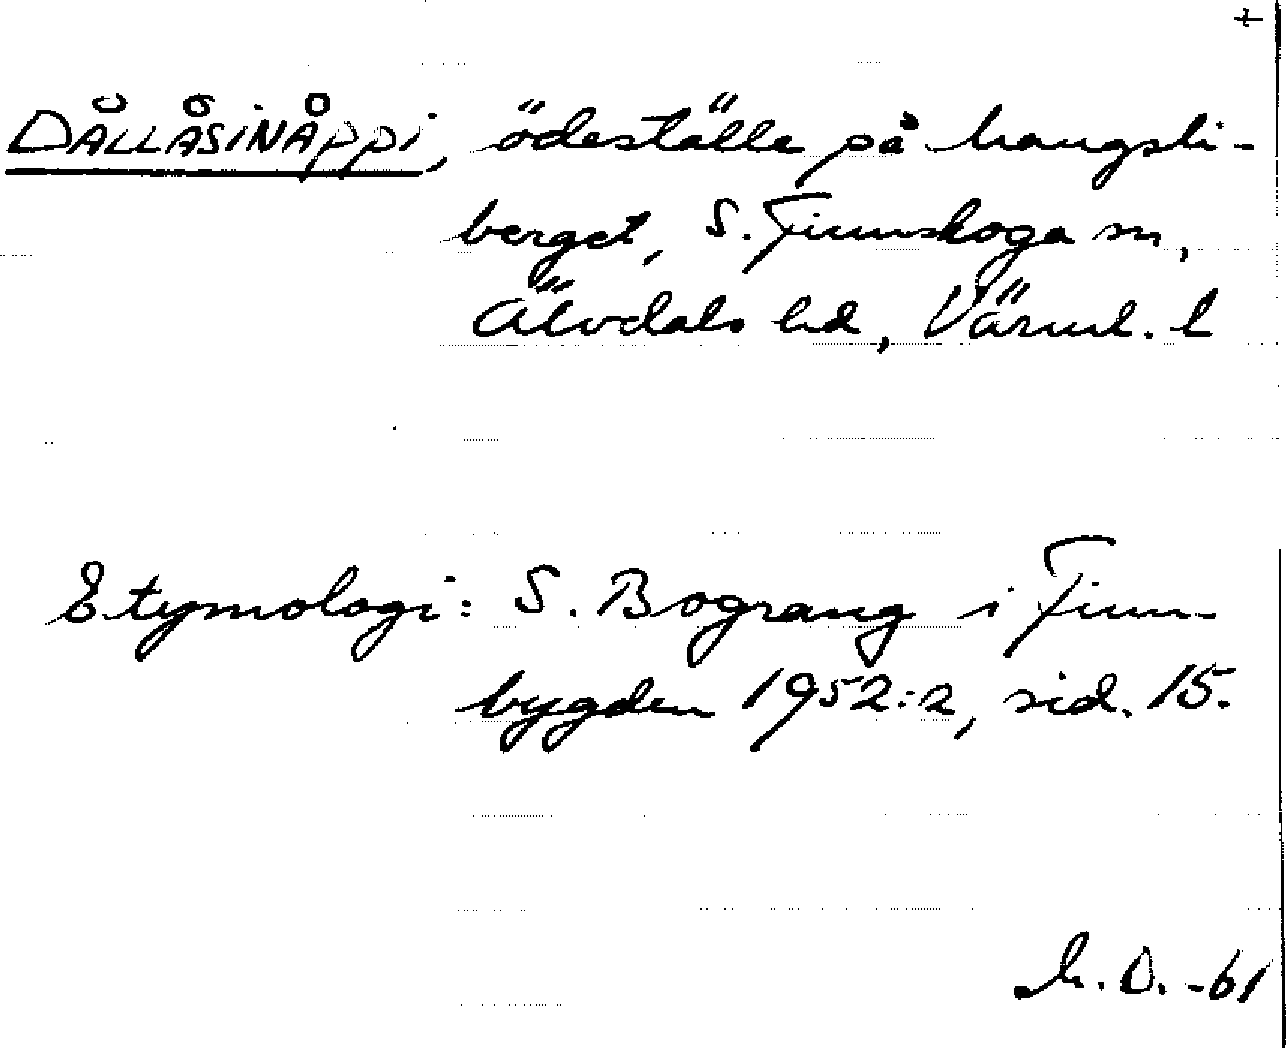 +
DÅLLÅSINÅPPI, ödeställe på
berget, S. Finnskoga sn,
Älvdals hd, Värml. l
Etymologi: S. Bograng i Finn-
bygden 1952:2, sid. 15.
D. -61